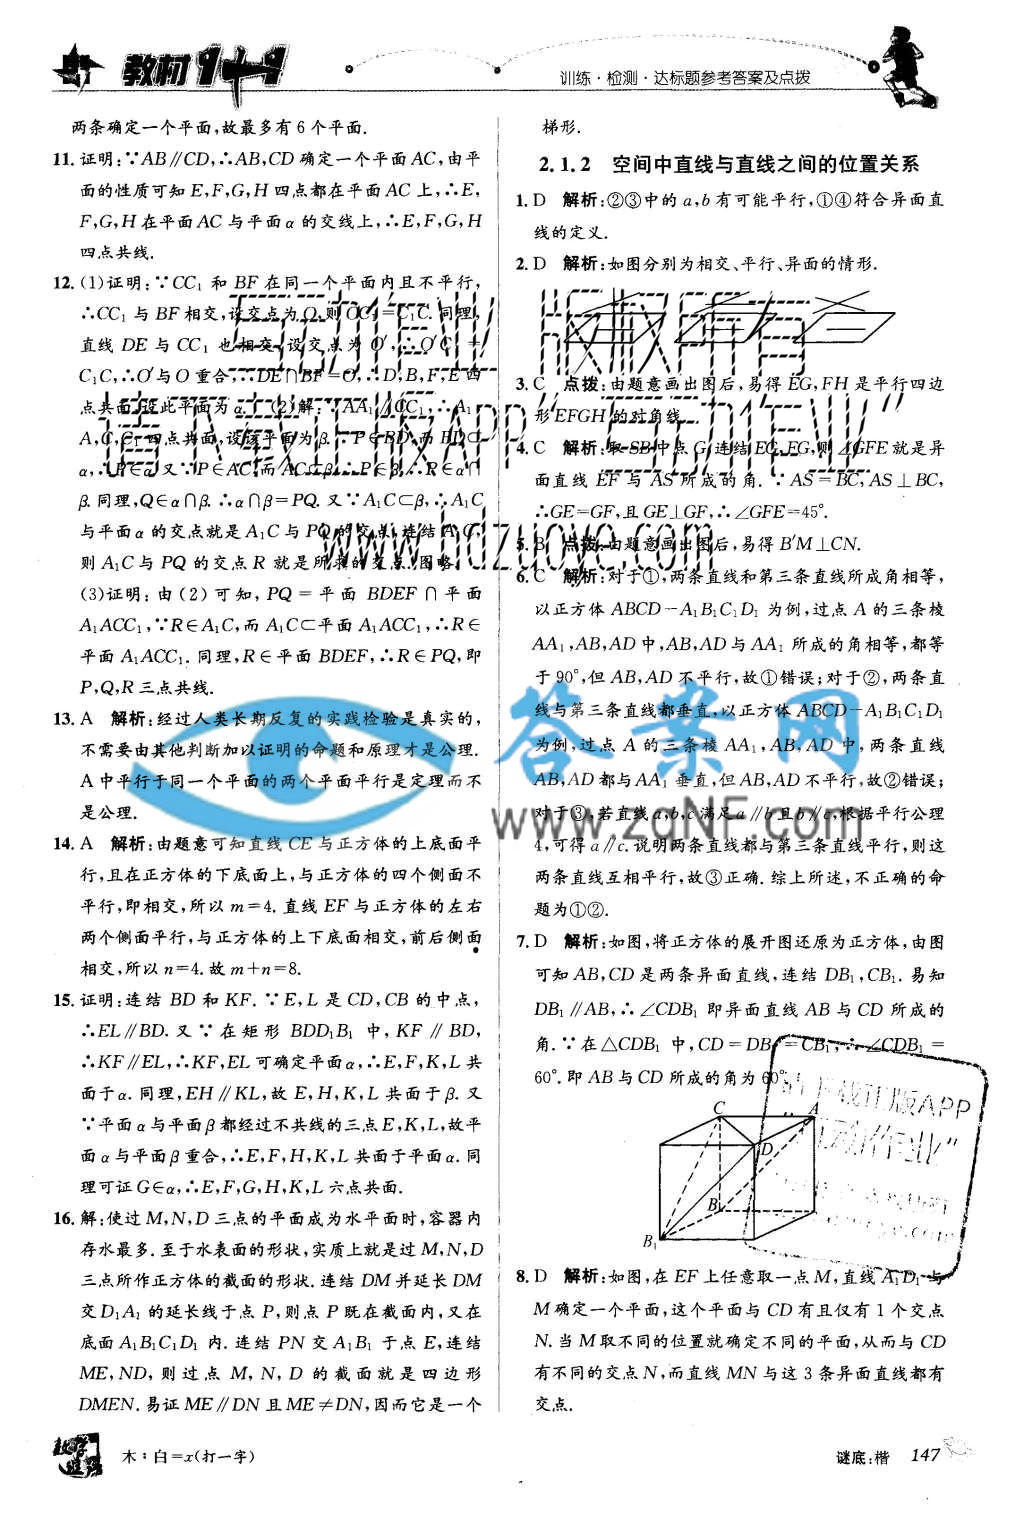 教材1+1
训练·检测·达标题参考答案及点拨
两条确定一个平面,故最多有6个平面.
11. 证明:∵AB∥CD,∴AB,CD确定一个平面AC,由平
面的性质可知E,F,G,H四点都在平面AC上,∴E,
F,G,H在平面AC与平面α的交线上,∴E,F,G,H
四点共线.
12. (1)证明:∵CC₁和BF在同一个平面内且不平行,
∴CC₁与BF相交,设交点为O,则OC₁=C₁C.同理,
直线DE与CC₁也相交,设交点为O′,∴O′C₁=
C₁C,∴O′与O重合,∴DE∩BF=O,∴D,B,F,E四
点共面,设此平面为α. (2)解:∵AA₁∥CC₁,∴A₁,
A,C,C₁四点共面,设该平面为β.∵P∈BD,而BD⊂
α,∴P∈α.又∵P∈AC,而AC⊂β,∴P∈β,∴P∈α∩
β.同理,Q∈α∩β.∴α∩β=PQ.又∵A₁C⊂β,∴A₁C
与平面α的交点就是A₁C与PQ的交点,连结A₁C,
则A₁C与PQ的交点R就是所求的交点.图略.
(3)证明:由(2)可知,PQ=平面BDEF∩平面
A₁ACC₁,∵R∈A₁C,而A₁C⊂平面A₁ACC₁,∴R∈
平面A₁ACC₁.同理,R∈平面BDEF,∴R∈PQ,即
P,Q,R三点共线.
13. A 解析:经过人类长期反复的实践检验是真实的,
不需要由其他判断加以证明的命题和原理才是公理.
A中平行于同一个平面的两个平面平行是定理而不
是公理.
14. A 解析:由题意可知直线CE与正方体的上底面平
行,且在正方体的下底面上,与正方体的四个侧面不
平行,即相交,所以m=4.直线EF与正方体的左右
两个侧面平行,与正方体的上下底面相交,前后侧面
相交,所以n=4.故m+n=8.
15. 证明:连结BD和KF.∵E,L是CD,CB的中点,
∴EL∥BD.又∵在矩形BDD₁B₁中,KF∥BD,
∴KF∥EL,∴KF,EL可确定平面α,∴E,F,K,L共
面于α.同理,EH∥KL,故E,H,K,L共面于β.又
∵平面α与平面β都经过不共线的三点E,K,L,故平
面α与平面β重合,∴E,F,H,K,L共面于平面α.同
理可证G∈α,∴E,F,G,H,K,L六点共面.
16. 解:使过M,N,D三点的平面成为水平面时,容器内
存水最多.至于水表面的形状,实质上就是过M,N,D
三点所作正方体的截面的形状.连结DM并延长DM
交D₁A₁的延长线于点P,则点P既在截面内,又在
底面A₁B₁C₁D₁内.连结PN交A₁B₁于点E,连结
ME,ND,则过点M,N,D的截面就是四边形
DMEN.易证ME∥DN且ME≠DN,因而它是一个
梯形.
2.1.2 空间中直线与直线之间的位置关系
1. D 解析:②③中的a,b有可能平行,①④符合异面直
线的定义.
2. D 解析:如图分别为相交、平行、异面的情形.
3. C 点拨:由题意画出图后,易得EG,FH是平行四边
形EFGH的对角线.
4. C 解析:取SB中点G,连结EG,FG,则∠GFE就是异
面直线EF与AS所成的角.∵AS=BC,AS⊥BC,
∴GE=GF,且GE⊥GF,∴∠GFE=45°.
5. B 点拨:由题意画出图后,易得B′M⊥CN.
6. C 解析:对于①,两条直线和第三条直线所成角相等,
以正方体ABCD-A₁B₁C₁D₁为例,过点A的三条棱
AA₁,AB,AD中,AB,AD与AA₁所成的角相等,都等
于90°,但AB,AD不平行,故①错误;对于②,两条直
线与第三条直线都垂直,以正方体ABCD-A₁B₁C₁D₁
为例,过点A的三条棱AA₁,AB,AD中,两条直线
AB,AD都与AA₁垂直,但AB,AD不平行,故②错误;
对于③,若直线a,b,c满足a∥b且b∥c,根据平行公理
4,可得a∥c.说明两条直线都与第三条直线平行,则这
两条直线互相平行,故③正确.综上所述,不正确的命
题为①②.
7. D 解析:如图,将正方体的展开图还原为正方体,由图
可知AB,CD是两条异面直线,连结DB₁,CB₁.易知
DB₁∥AB,∴∠CDB₁即异面直线AB与CD所成的
角.∵在△CDB₁中,CD=DB₁=CB₁,∴∠CDB₁=
60°.即AB与CD所成的角为60°.
C A
D
B
B₁
8. D 解析:如图,在EF上任意取一点M,直线A₁D₁与
M确定一个平面,这个平面与CD有且仅有1个交点
N.当M取不同的位置就确定不同的平面,从而与CD
有不同的交点N,而直线MN与这3条异面直线都有
交点.
木:白=x(打一字)
谜底:楷 147
互动作业 版权所有
请下载正版APP“互动作业”
www.hdzuoye.com
答案网
www.zqNF.com